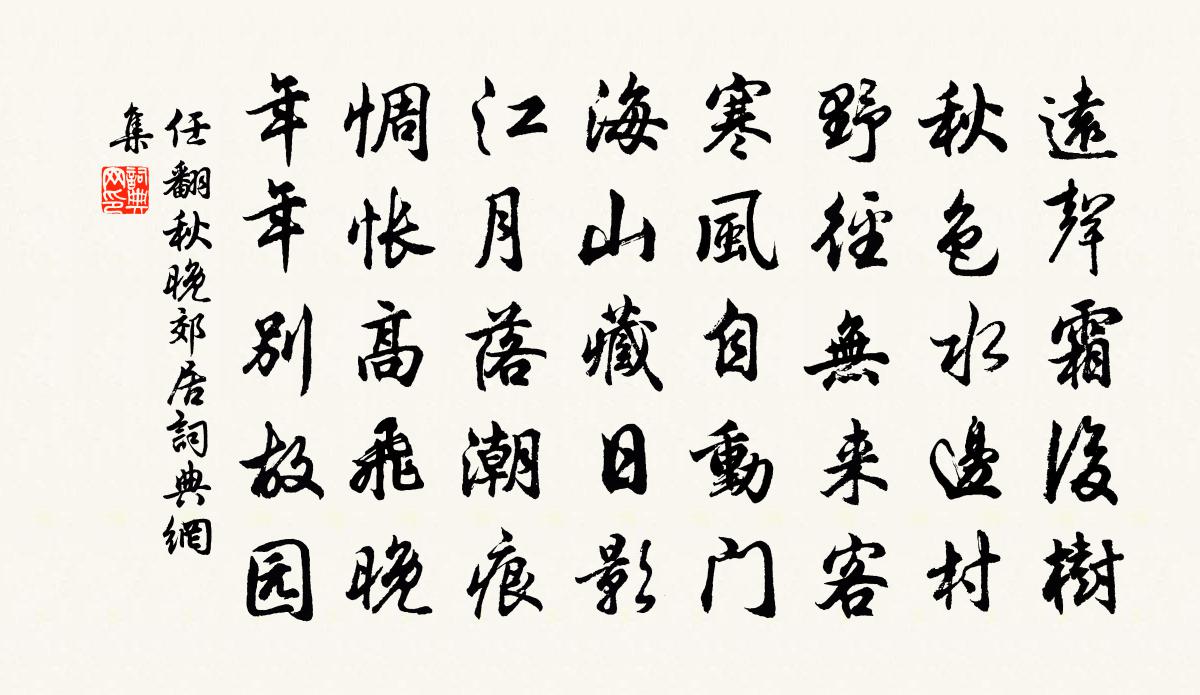 遠聲霜後樹
秋色水邊村
野徑無来客
寒風自動门
海山藏日影
江月落潮痕
惆怅高飛晚
年年别故园
任翻秋晚郊居詞典網
集
詞典网印